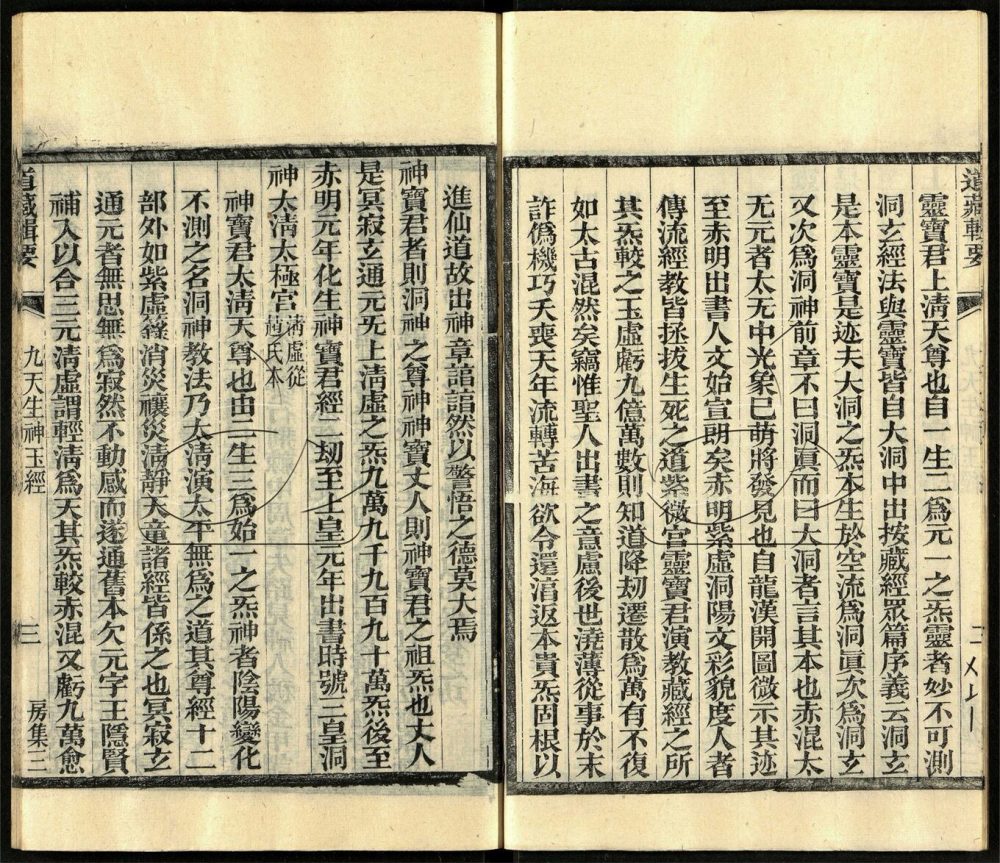 道藏輯要
靈寶君上淸天尊也自一生二爲元一之炁靈者妙不可測
洞玄經法與靈寶皆自大洞中出按藏經眾篇序義云洞玄
是本靈寶是迹夫大洞之炁本生於空流爲洞眞次爲洞玄
又次爲洞神前章不曰洞眞而曰大洞者言其本也赤混太
无元者太无中光象巳萌將發見也自龍漢開圖微示其迹
至赤明出書人文始宣朗矣赤明紫虛洞陽文彩貌度人者
傳流經教皆拯拔生死之道紫微宫靈寶君演教藏經之所
其炁較之玉虛虧九億萬數則知道降刧遷散爲萬有不復
如太古混然矣竊惟聖人出書之意慮後也澆薄從事於末
詐僞機巧夭喪天年流轉苦海欲令還湻返本貴炁固根以
進仙道故出神章諳諳然以警悟之德莫大焉
神寶君者則洞神之尊神神寶丈人則神寶君之祖炁也丈人
是冥寂玄通元旡上淸虛之炁九萬九千九百九十萬炁後至
赤明元年化生神寶君經二刼至上皇元年出書時號三皇洞
神太淸太極宫淸虛從黃氏本
神寶君太淸天尊也由二生三爲始一之炁神者陰陽變化
不測之名洞神教法乃太淸演太平無爲之道其尊經十二
部外如紫虛籙消災禳災淸靜天童諸經皆係之也冥寂玄
通元者無思無爲寂然不動感而遂通舊本欠元字王隱賢
補入以合三元淸虛謂輕淸爲天其炁較赤混又虧九萬愈
道藏輯要
九天生神玉經
三
房集三